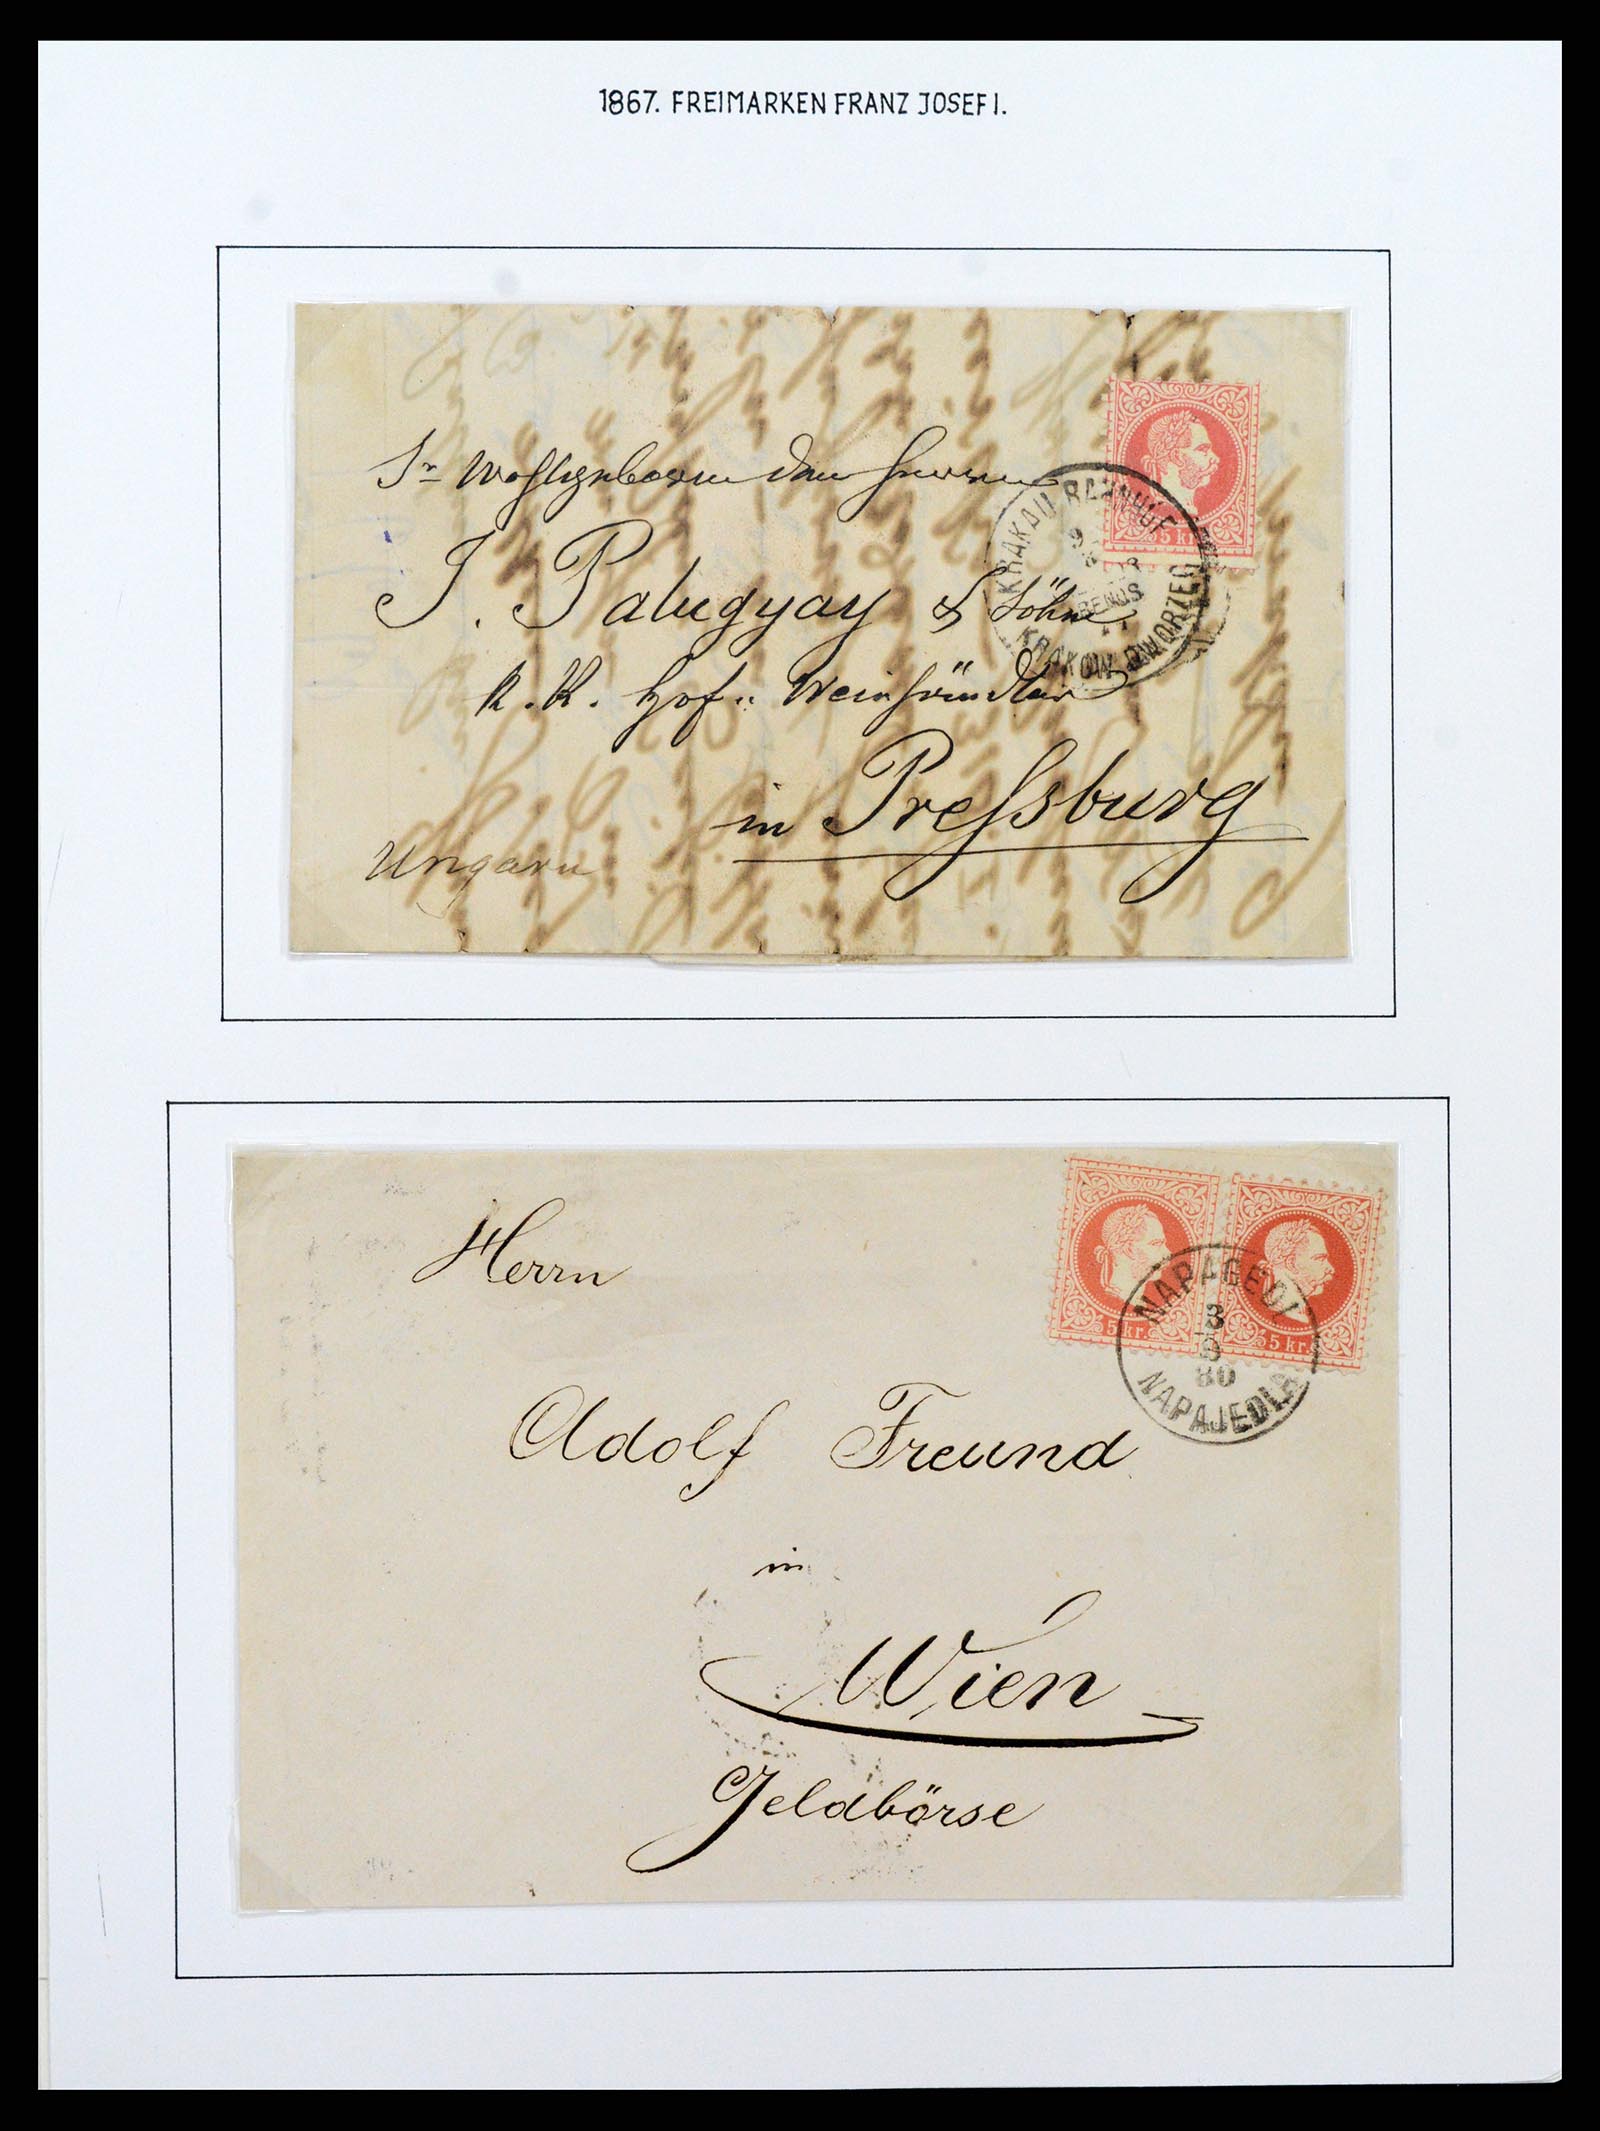 1867. FREIMARKEN FRANZ JOSEF I.
Sr Wohlgeboren dem Herrn
J. Palugyay & Söhne
k. k. Hof-Weinhändler
in Pressburg
Ungarn
5 kr.
KRAKAU BAHNHOF
ABENDS
KRAKÓW DWORZEC
Herrn
Adolf Freund
in
Wien
Geldbörse
5 kr.
5 kr.
NAPAGEDL
3
80
NAPAJEDLA